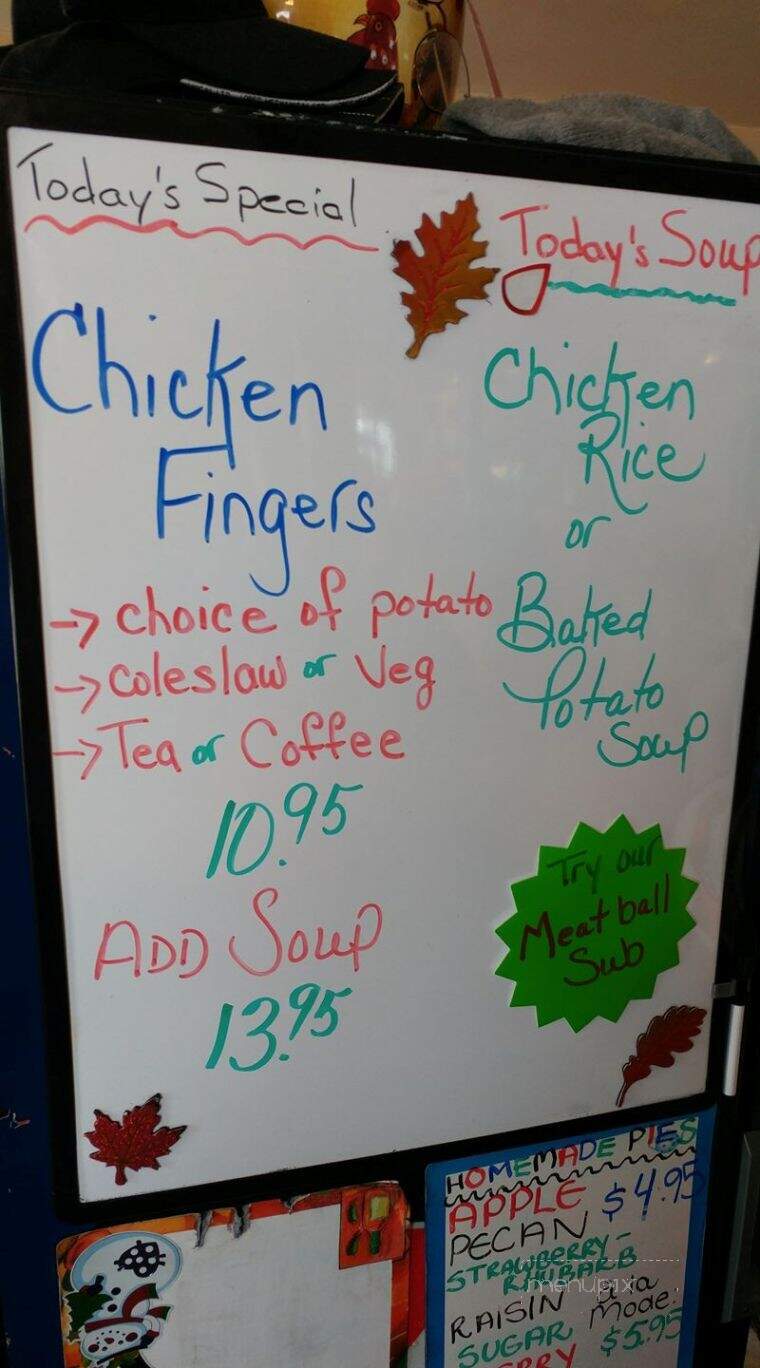 Today's Special
Chicken
Fingers
→ choice of potato
→ coleslaw or Veg
→ Tea or Coffee
10.95
ADD Soup
13.95
Today's Soup
Chicken
Rice
or
Baked
Potato
Soup
Try our
Meatball
Sub
HOMEMADE PIES
APPLE $4.95
PECAN
STRAWBERRY-
RHUBARB
RAISIN a la
Mode.
SUGAR $5.95
menupix